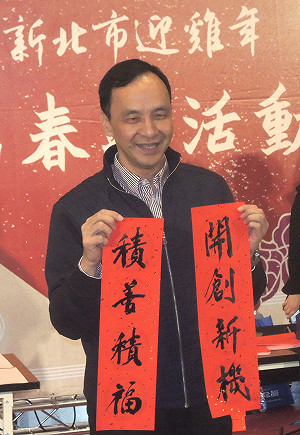 新北市迎雞年
春 活動
開創新機
積善積福